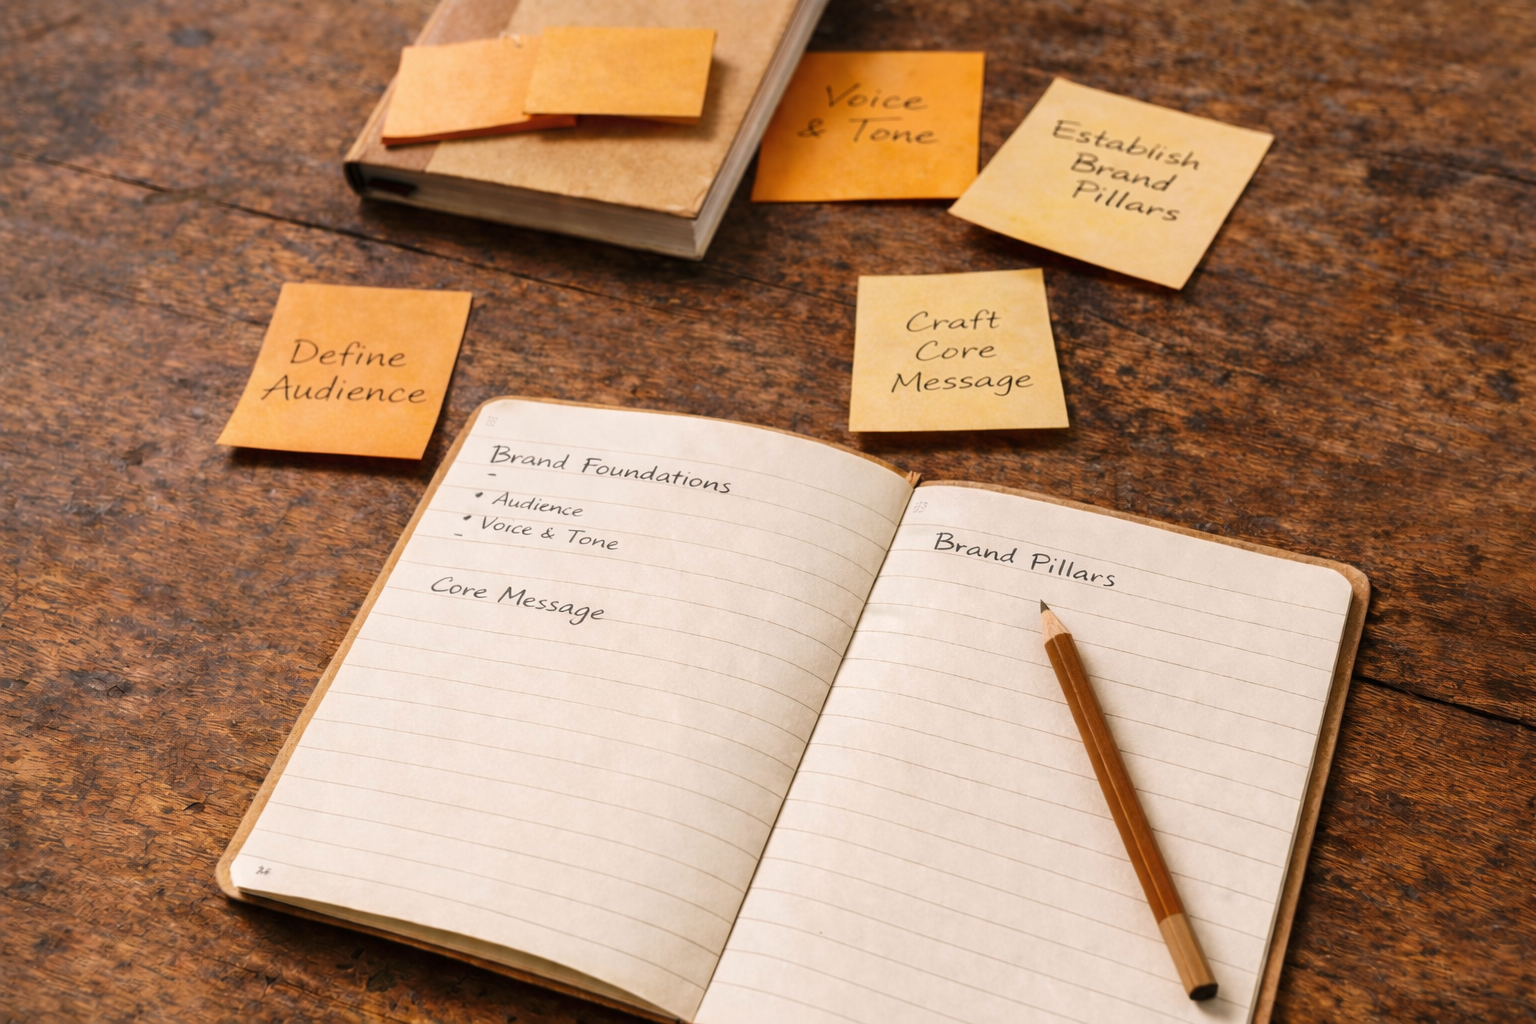 Voice
& Tone
Establish
Brand
Pillars
Define
Audience
Craft
Core
Message
Brand Foundations
• Audience
• Voice & Tone
Core Message
Brand Pillars